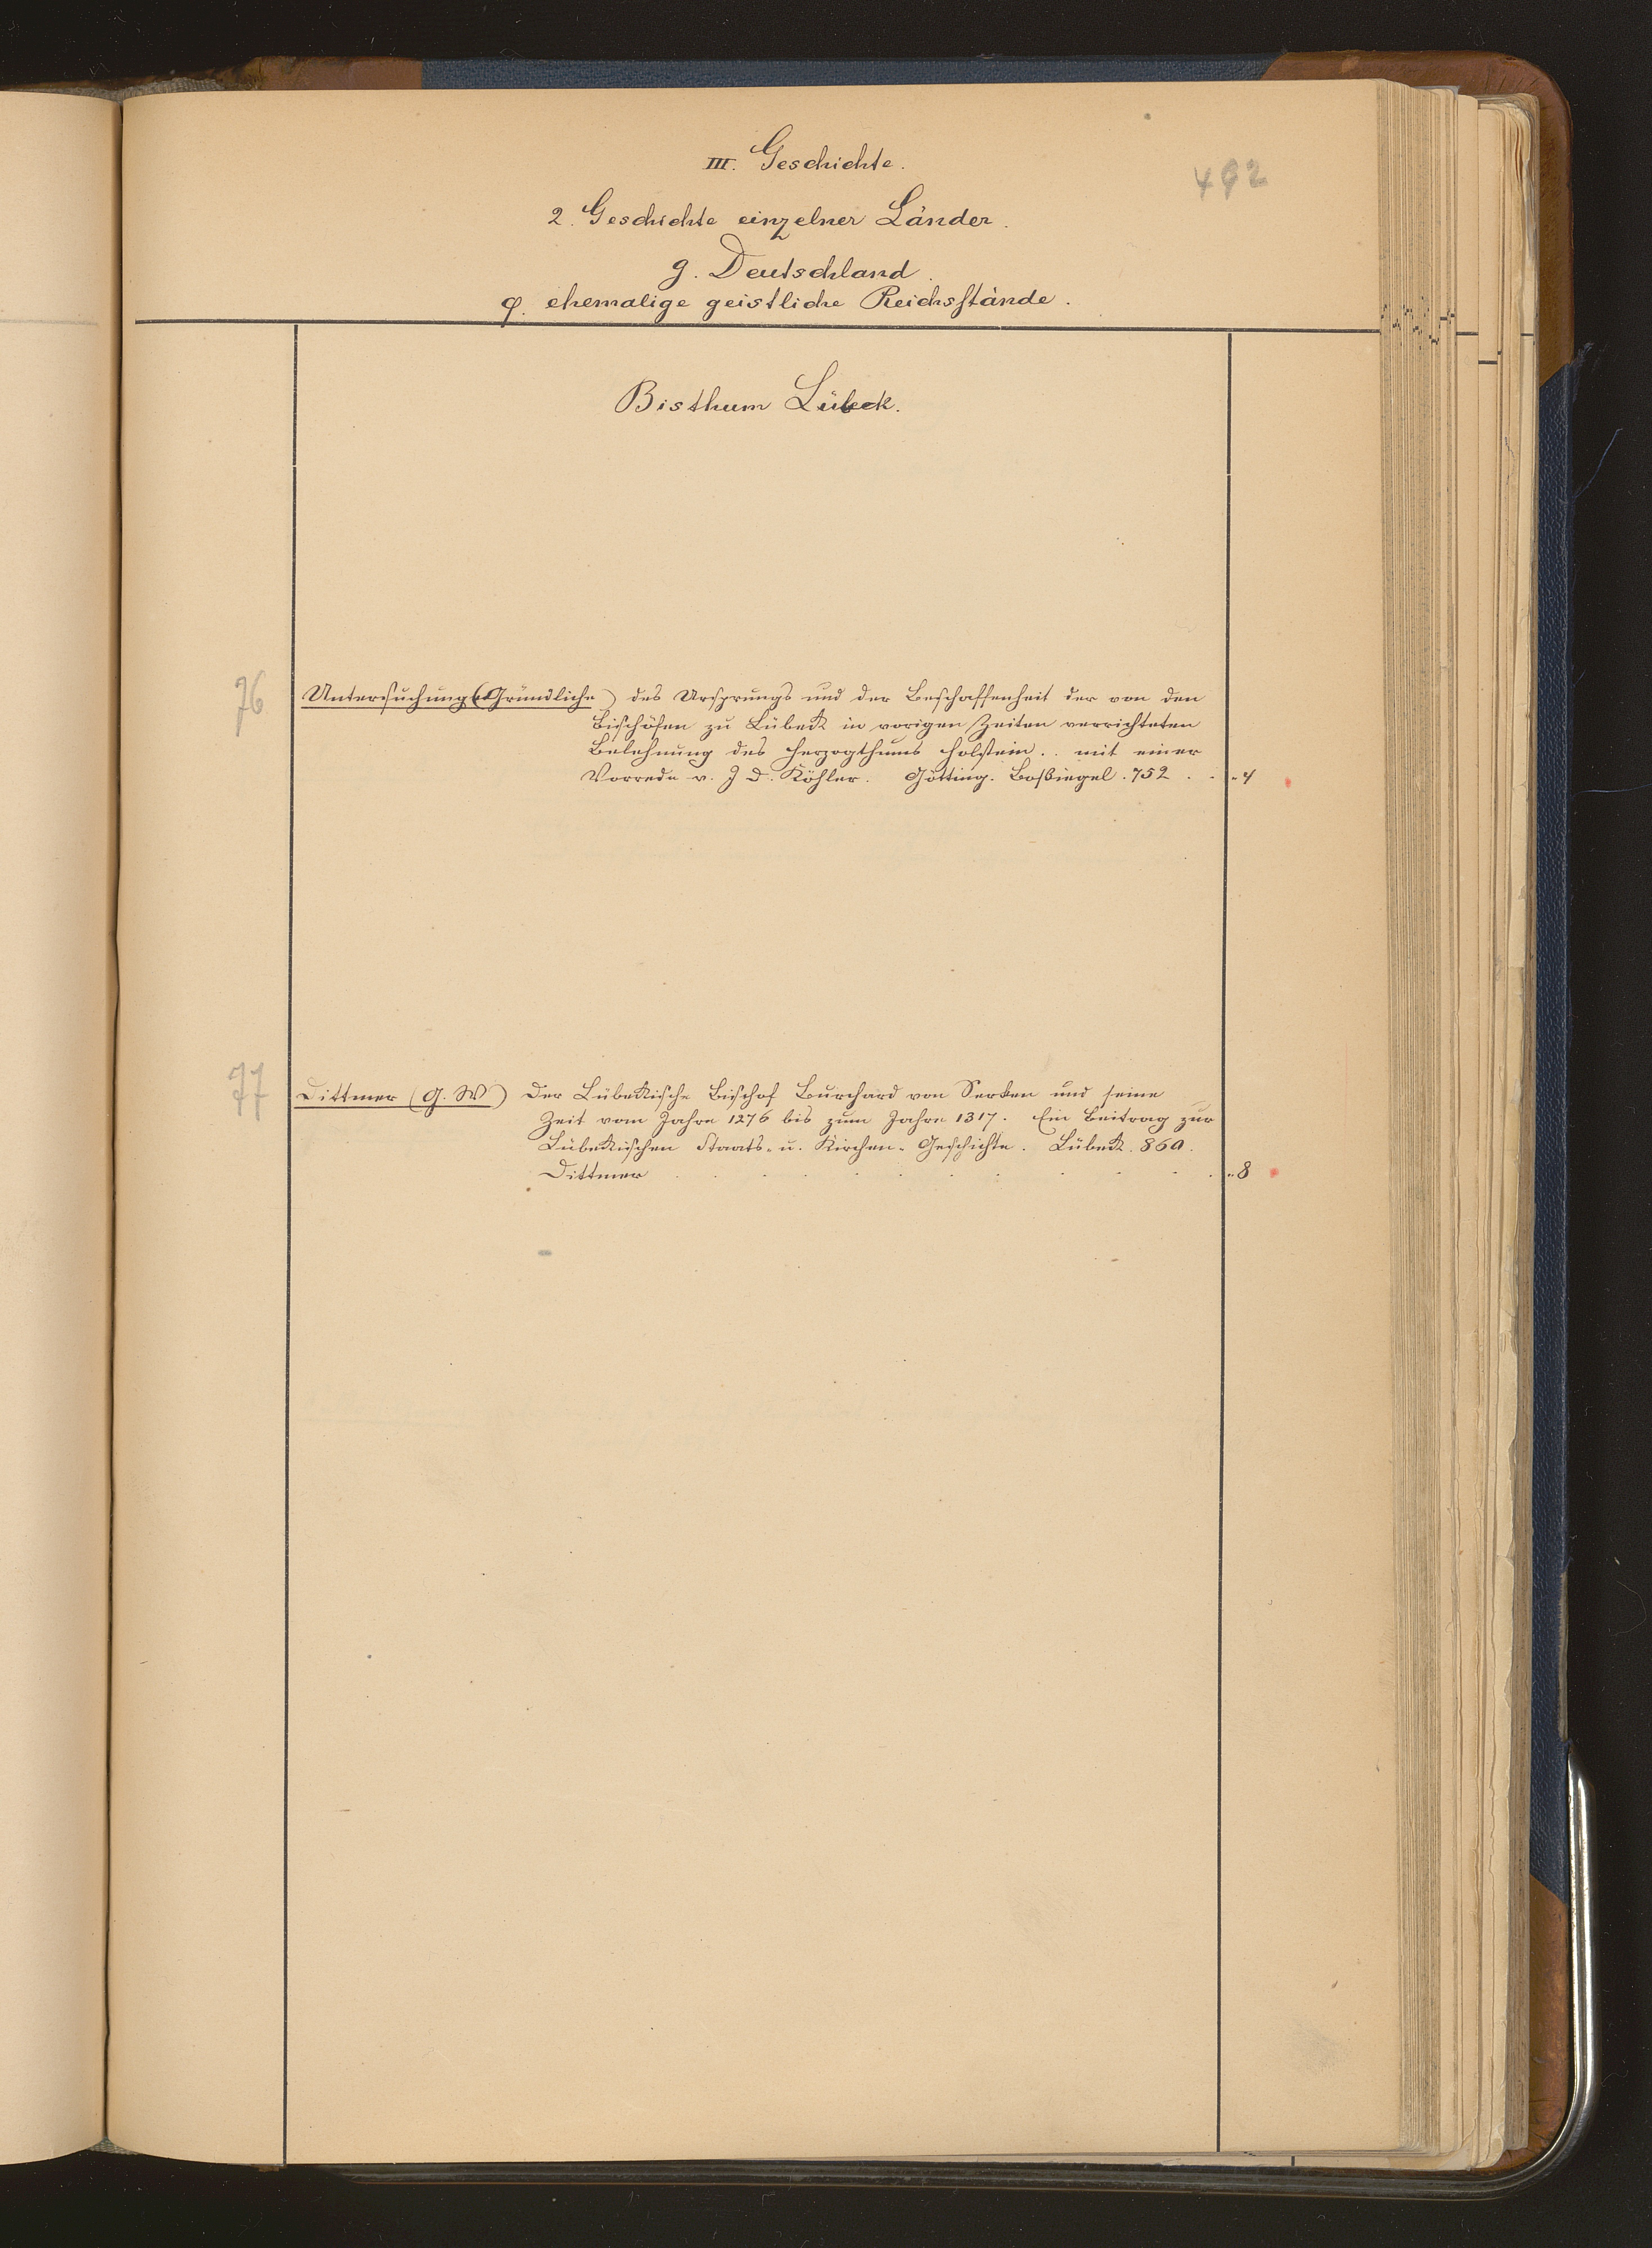 III. Geschichte.
492
2. Geschichte einzelner Länder.
g. Deutschland.
φ. ehemalige geistliche Reichsstände.
Bisthum Lübeck.
76
Untersuchung (Gründliche) des Ursprungs und der Beschaffenheit der von den
Bischöfen zu Lübeck in vorigen Zeiten verrichteten
Belehnung des Herzogthums Holstein .. mit einer
Vorrede v. J. D. Köhler. Götting. Boßiegel. 752 . . „ 4
77
Dittmer (G. W) Der Lübeckische Bischof Burchard von Serken und seine
Zeit vom Jahre 1276 bis zum Jahre 1317. Ein Beitrag zur
Lübeckischen Staats- u. Kirchen-Geschichte. Lübeck. 860.
Dittmer . . . . . . . . . . „ 8